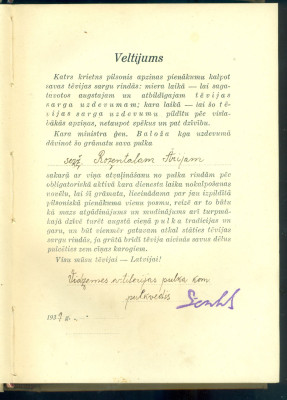 Veltījums
Katrs krietns pilsonis apzinas pienākumu kalpot
savas tēvijas sargu rindās: miera laikā — lai saga-
tavotos augstajam un atbildīgajam tēvijas
sarga uzdevumam; kara laikā — lai šo tē-
vijas sarga uzdevumu pildītu pēc vislā-
bākās apziņas, netaupot spēkus un pat dzīvību.
Kara ministra ģen. Baloža kga uzdevumā
dāvinot šo grāmatu sava pulka
Rozentalam
sakarā ar viņa atvaļināšanu no pulka rindām pēc
obligatoriskā aktīvā kara dienesta laika nokalpošanas
novēlu, lai šī grāmata, liecinādama par jau izpildītā
pilsoniskā pienākuma vienu posmu, reizē ar to būtu
kā mazs atgādinājums un mudinājums arī turpmā-
kajā dzīvē turēt augstā cieņā pulka tradicijas un
garu, un būt vienmēr gatavam atkal stāties tēvijas
sargu rindās, ja grūtā brīdī tēvija aicinās savus dēlus
pulcēties zem viņas karogiem.
Visu mūsu tēvijai — Latvijai!
Vidzemes artilērijas pulka kom.
pulkvedis
193